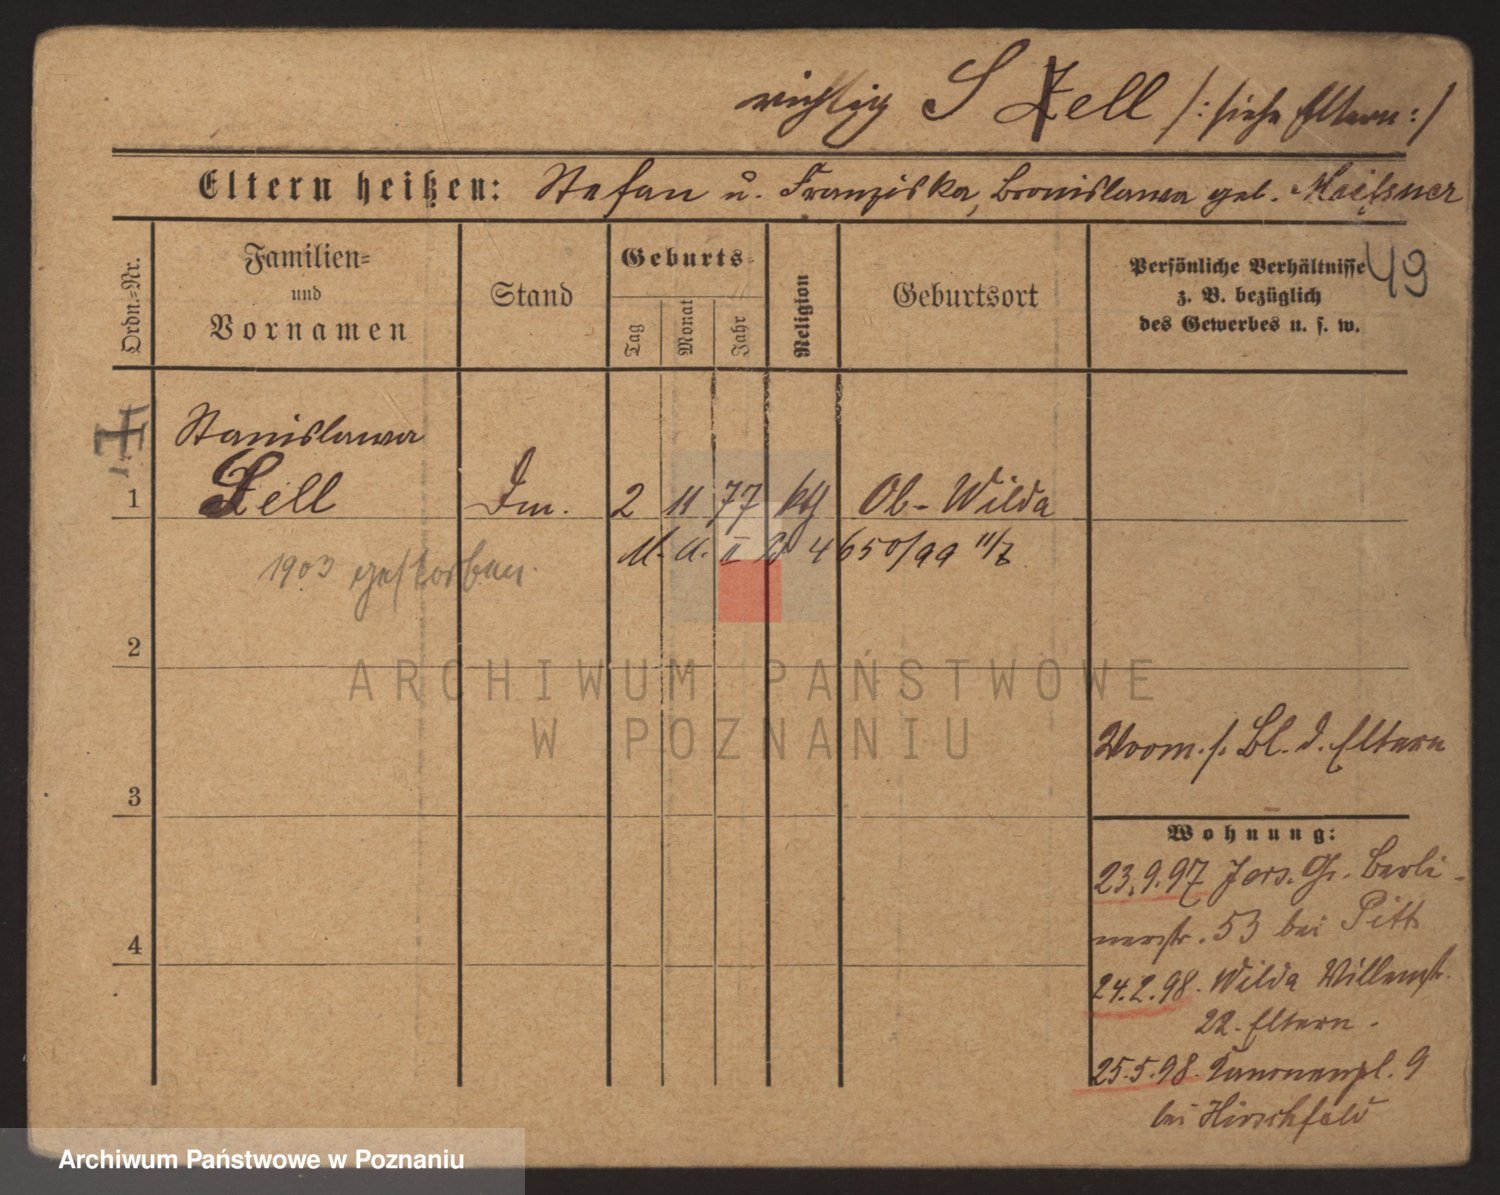 richtig S Zell /: siehe Eltern :/
Eltern heißen: Stefan u. Franziska, Bronislawa geb. Meißner
Ordn.=Nr.
Familien=
und
Vornamen
Stand
Geburts=
Tag
Monat
Jahr
Religion
Geburtsort
Persönliche Verhältnisse
z. B. bezüglich
des Gewerbes u. s. w.
49
Stanislawa
1 Zell 2 11 77 kth Ob-Wilda
M. A. II 4650/99 11/7
1903 gestorben.
2
ARCHIWUM PAŃSTWOWE
W POZNANIU
Vorm. s. Bl. d. Eltern
3
Wohnung:
23.9.97 Jers. Gr. Berli-
nerstr. 53 bei Pitt
4
24.2.98. Wilda Willenstr.
22. Eltern.
25.5.98. Kanonenpl. 9
bei Hirschfeld
Archiwum Państwowe w Poznaniu